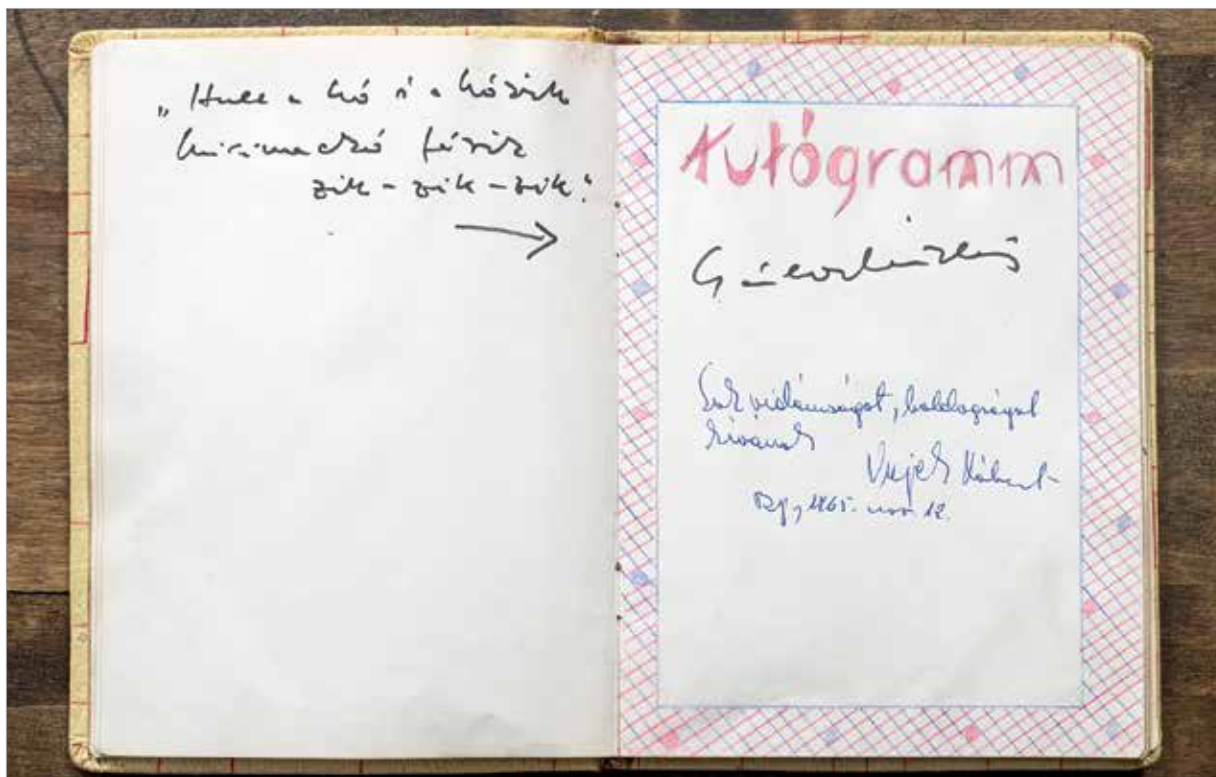 „Hull a hó és a hózik
Micimackó fázik
zik - zik - zik."
Autógramm
Gálvölgyi
Sok vidámságot, boldogságot
kívánok
Vujek Róbert
Bp, 1965. nov. 12.